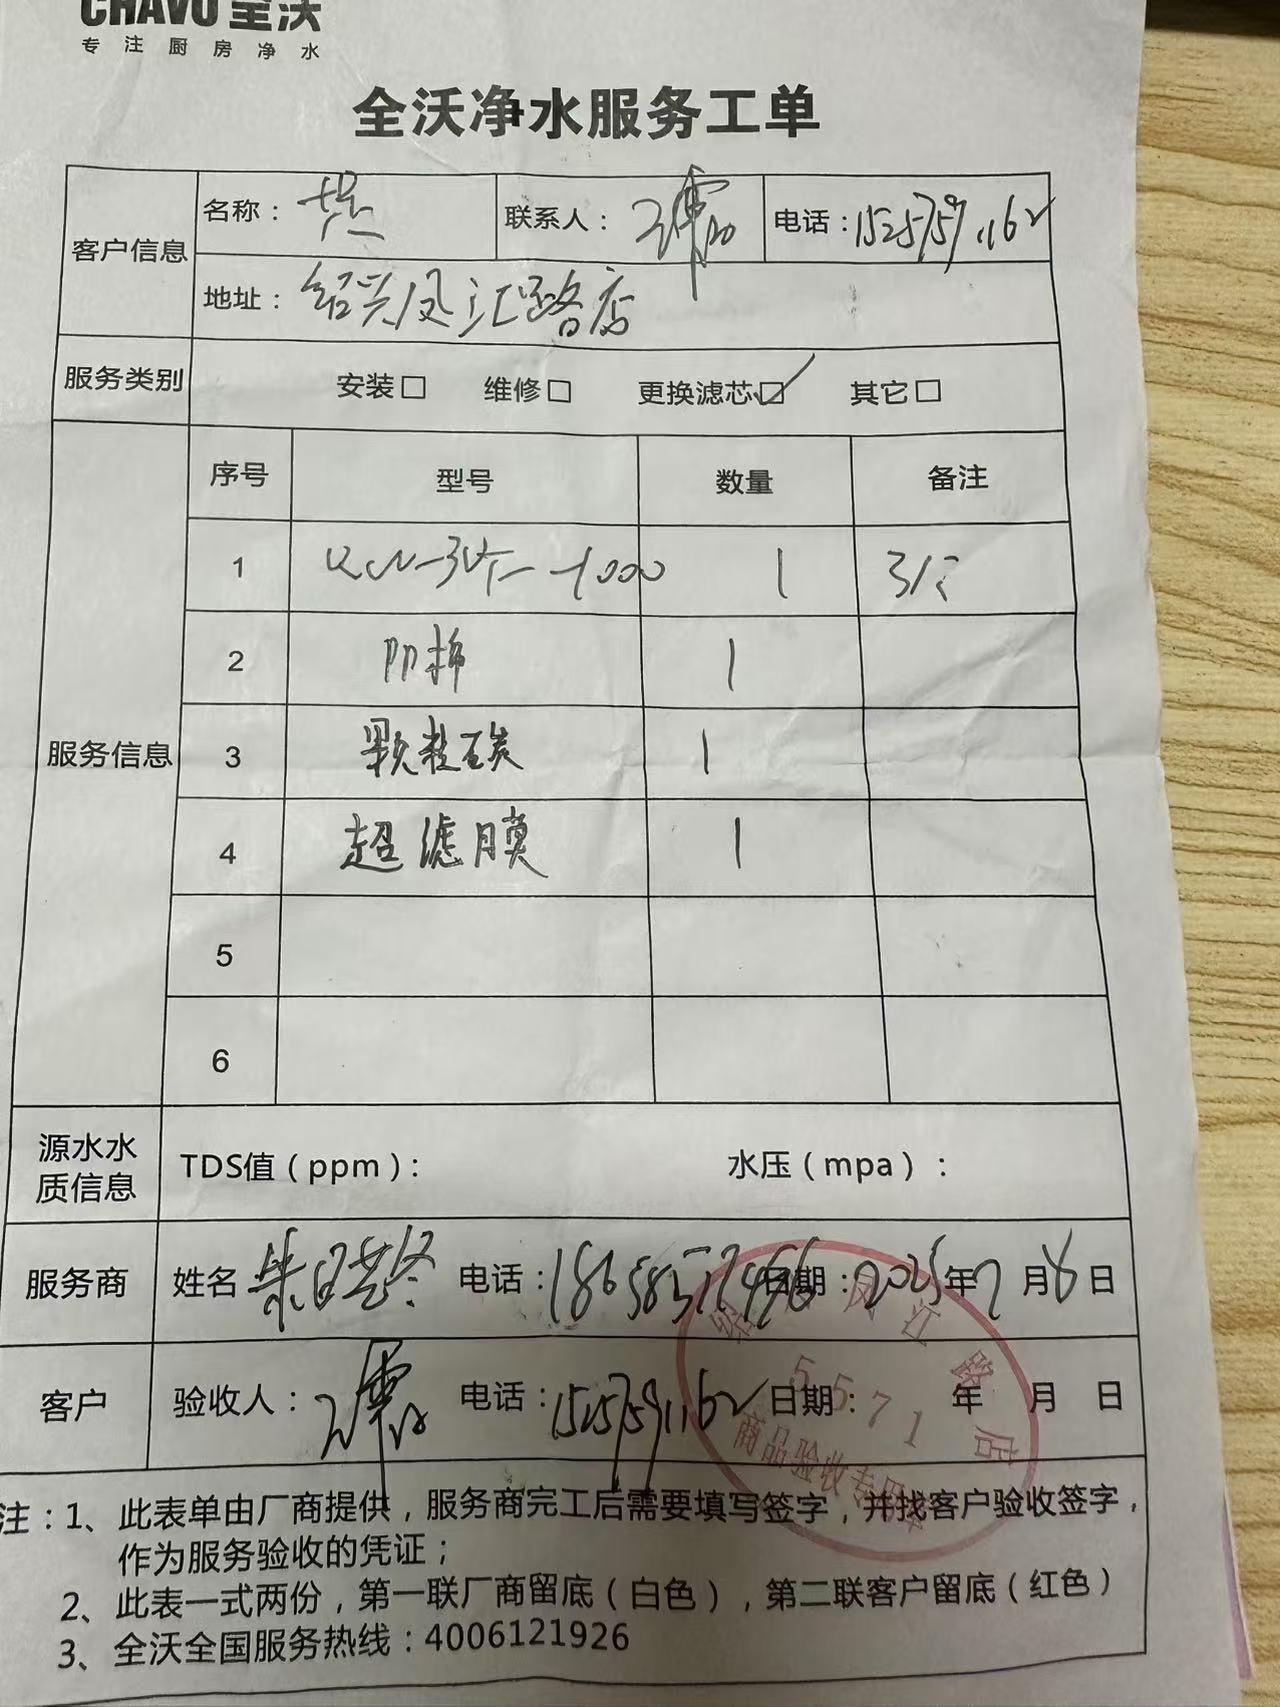 CHAVO 全沃
专注厨房净水
全沃净水服务工单
客户信息
名称：
联系人：
电话：15257591162
地址：绍兴凤江路店
服务类别
安装□ 维修□ 更换滤芯☑ 其它□
服务信息
序号 型号 数量 备注
1 -1000 1
2 PP棉 1
3 颗粒碳 1
4 超滤膜 1
5
6
源水水质信息
TDS值（ppm）： 水压（mpa）：
服务商 姓名 电话： 日期：2025年7月8日
客户 验收人： 电话：15257591162 日期： 年 月 日
凤江路店
5571
商品验收专用章
注：1、此表单由厂商提供，服务商完工后需要填写签字，并找客户验收签字，
作为服务验收的凭证；
2、此表一式两份，第一联厂商留底（白色），第二联客户留底（红色）
3、全沃全国服务热线：4006121926